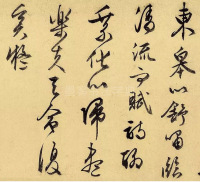 東皋以舒嘯臨
清流而賦詩聊
乘化以歸盡
樂夫天命復
奚疑